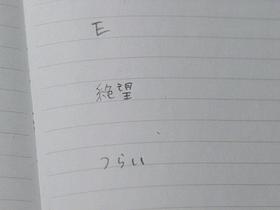 E
絶望
つらい